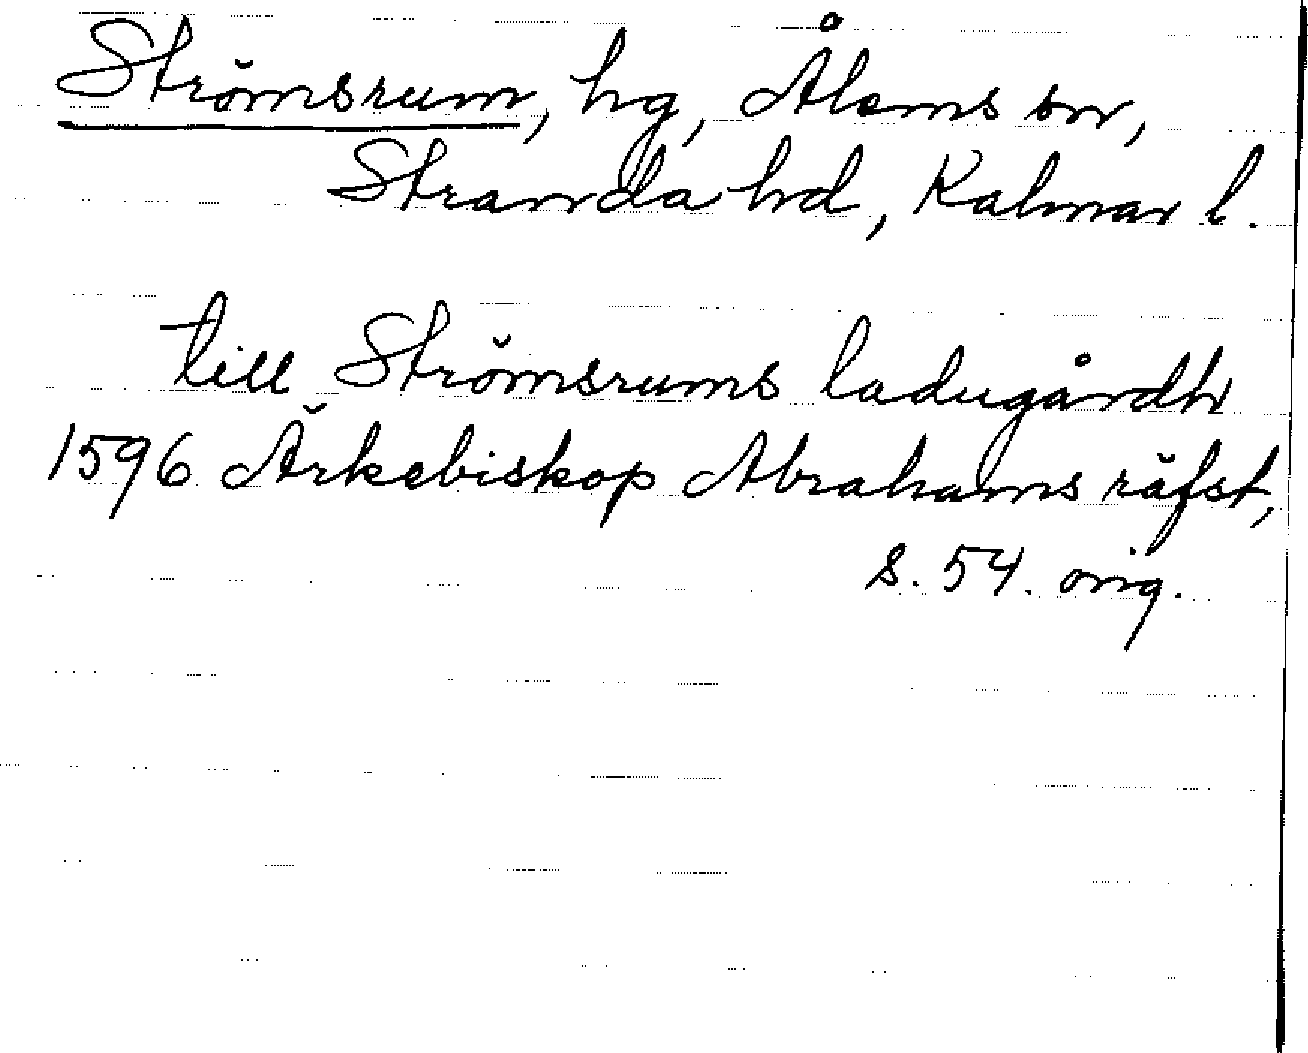 Strömsrum, hg, Ålems sn,
Stranda hd, Kalmar l.
till Strömsrums ladugårdh
1596 Ärkebiskop Abrahams räfst,
s. 54. orig.